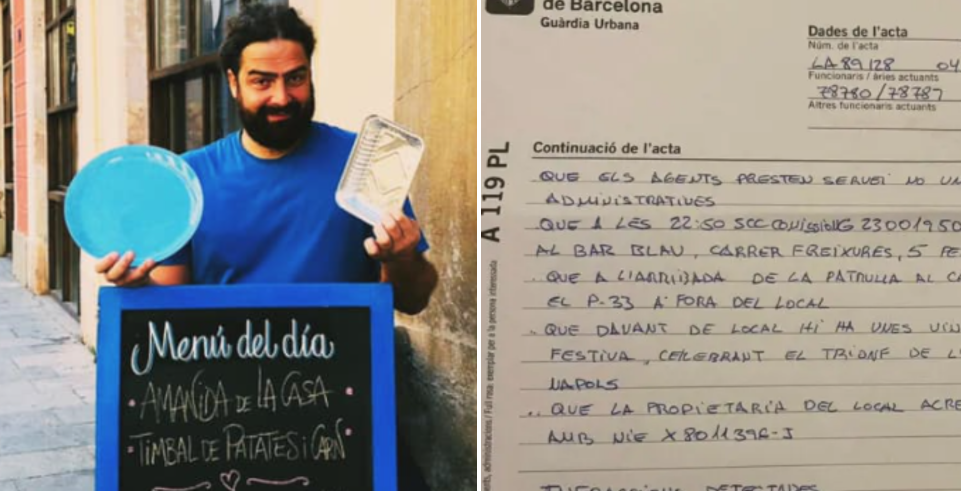 Menú del día
AMANIDA DE LA CASA
TIMBAL DE PATATES i CARN
de Barcelona
Guàrdia Urbana
Dades de l'acta
Núm. de l'acta
LA 89128 04
Funcionaris / àries actuants
78780/78787
Altres funcionaris actuants
A 119 PL
Continuació de l'acta
QUE ELS AGENTS PRESTEN SERVEI NO UN
ADMINISTRATIVES
QUE A LES 22:50 SCC 2300195
AL BAR BLAU, CARRER FREIXURES, 5 PE
. QUE A L'ARRIBADA DE LA PATRULLA AL CA
EL P-33 A FORA DEL LOCAL
. QUE DAVANT DE LOCAL HI HA UNES VIN
FESTIVA, CELEBRANT EL TRIONF DE L
NAPOLS
.. QUE LA PROPIETARIA DEL LOCAL ACRE
AMB NIE X8011396-J
DETECTADES